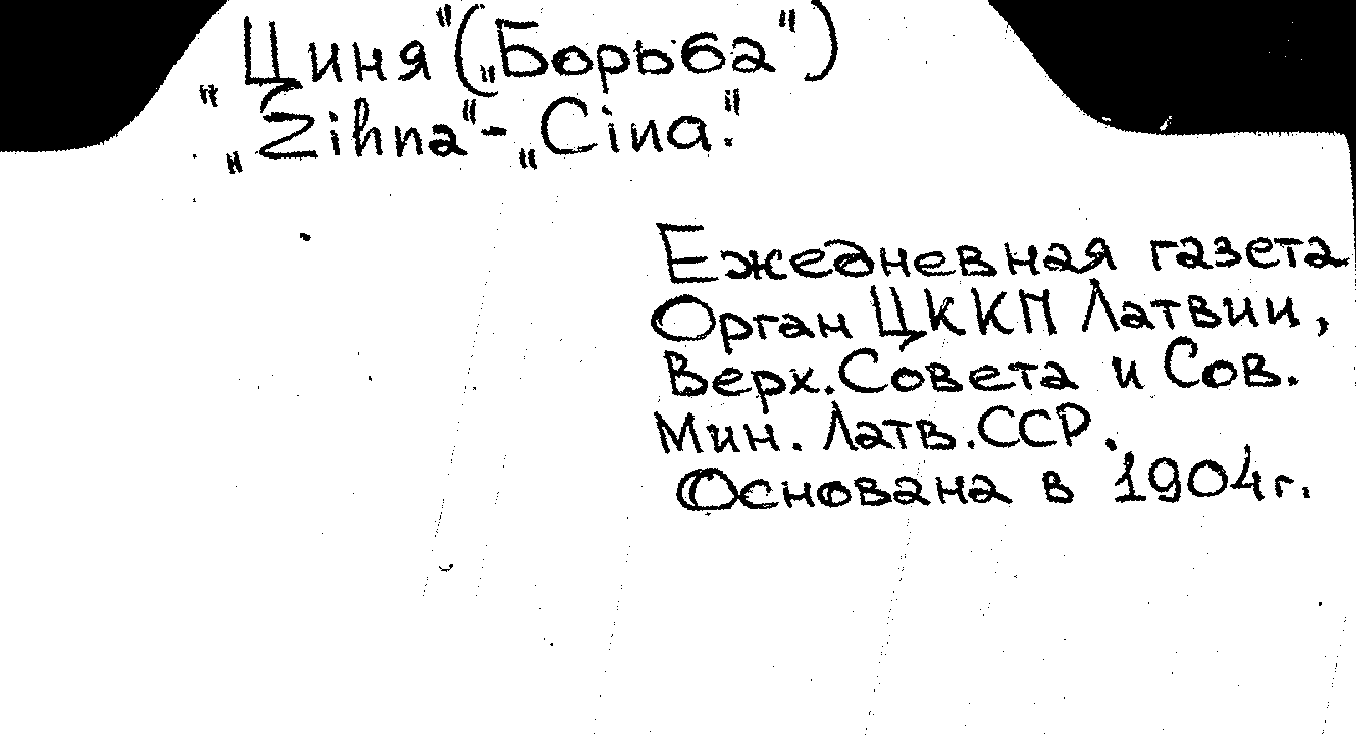 „Циня" („Борьба")
„Zihna" - „Cina."
Ежедневная газета
Орган ЦК КП Латвии,
Верх. Совета и Сов.
Мин. Латв. ССР.
Основана в 1904 г.